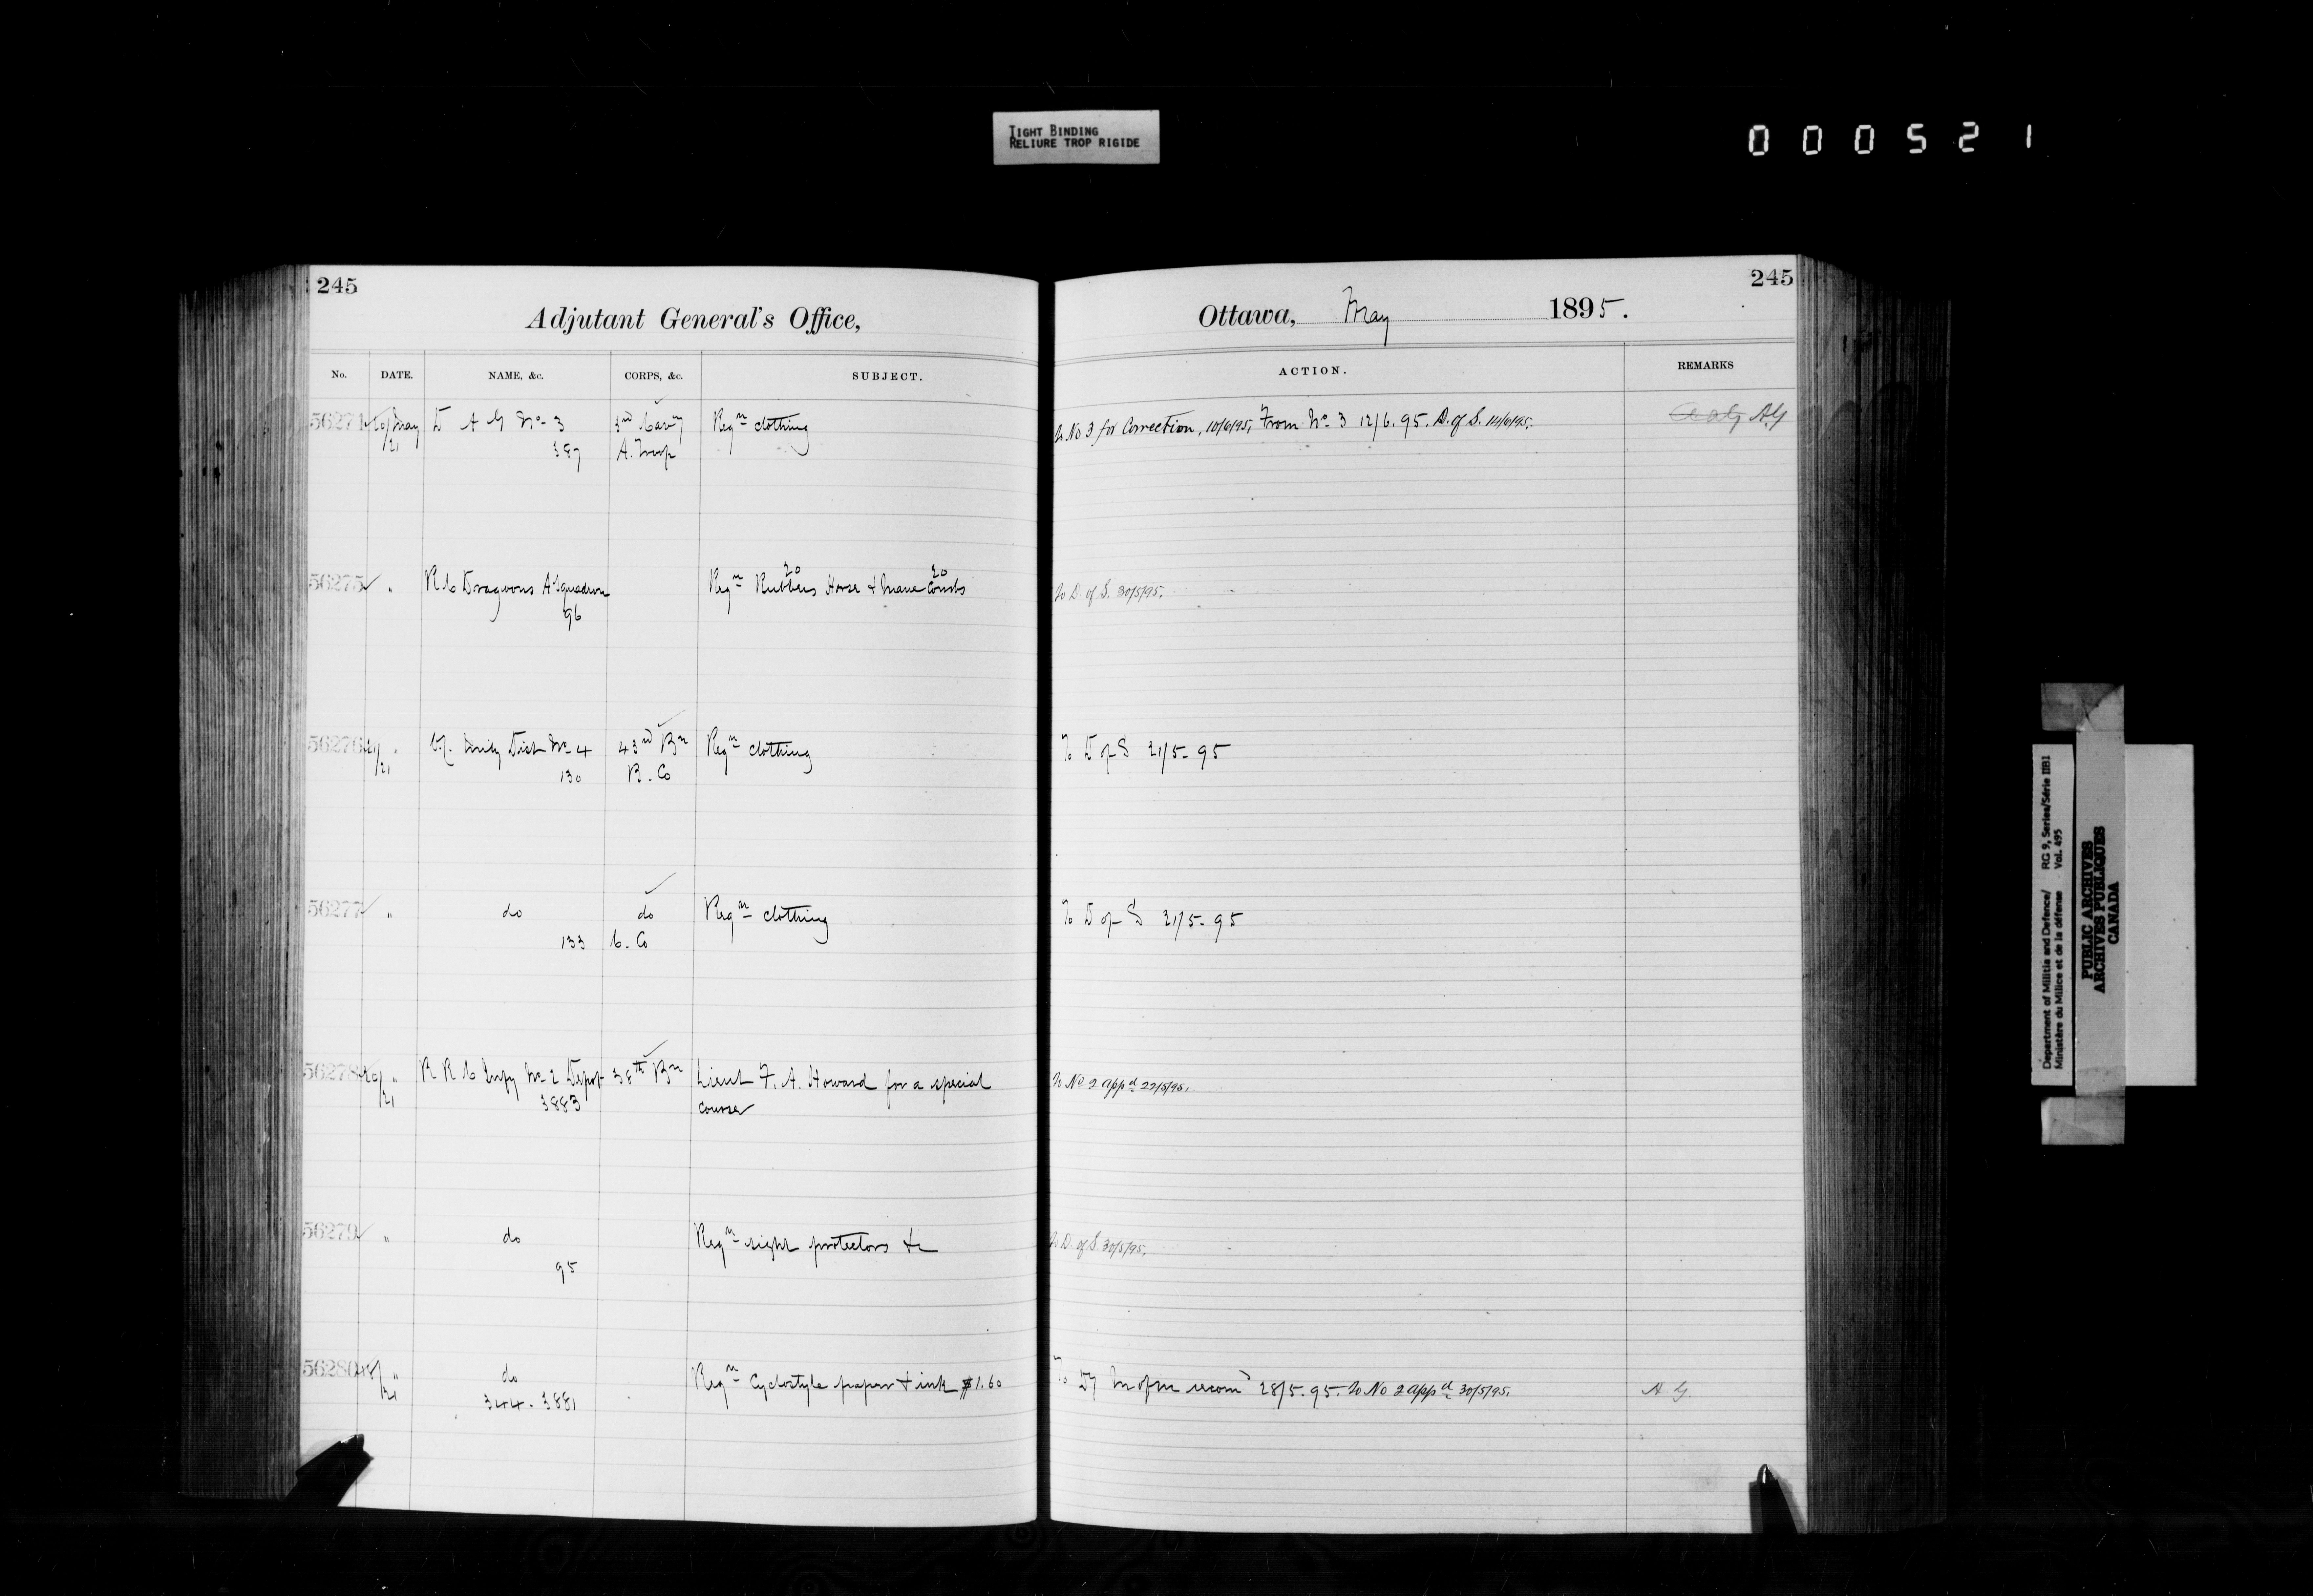 TIGHT BINDING
RELIURE TROP RIGIDE
000521
245
Adjutant General's Office,
No. DATE. NAME, &c. CORPS, &c. SUBJECT.
56274 20/May D A G No. 3 3rd Cavy Reqn clothing
/21 387 A. Troop
56275 " R C Dragoons A Squadron Reqn Rubbers 20 Horse & Mane Combs 20
96
56276 " Mily Dist No. 4 43rd Bn Reqn clothing
/21 130 B. Co
56277 " do do Reqn clothing
133 C. Co
56278 20/ " R R C Infy No. 2 Depot 38th Bn Lieut F. A. Howard for a special
/21 3883 course
56279 " do Reqn sight protectors &c
95
56280 18/ " do Reqn Cyclostyle paper & ink $1.60
/21 344. 3881
245
Ottawa, May 1895.
ACTION. REMARKS
To No 3 for Correction, 10/6/95, From No. 3 12/6.95. D. of S. 14/6/95. AG
To D. of S. 30/5/95.
To D of S 21/5-95
To D of S 21/5-95
To No 2 appd 22/5/95.
To D. of S. 30/5/95.
To Dy M of M recomd 28/5-95. To No 2 appd 30/5/95. A G.
Department of Militia and Defence/ RG 9, Series/Série IIB1
Ministère du Milice et de la défense Vol. 495
PUBLIC ARCHIVES
ARCHIVES PUBLIQUES
CANADA